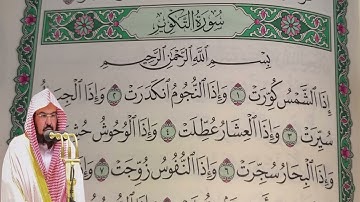 سُورَةُ التَّكْوِيرِ
بِسْمِ اللَّهِ الرَّحْمَٰنِ الرَّحِيمِ
إِذَا الشَّمْسُ كُوِّرَتْ ١ وَإِذَا النُّجُومُ انْكَدَرَتْ ٢ وَإِذَا
سُيِّرَتْ ٣ وَإِذَا الْعِشَارُ عُطِّلَتْ ٤ وَإِذَا الْوُحُوشُ
وَإِذَا الْبِحَارُ سُجِّرَتْ ٦ وَإِذَا النُّفُوسُ زُوِّجَتْ ٧ وَإِذَا